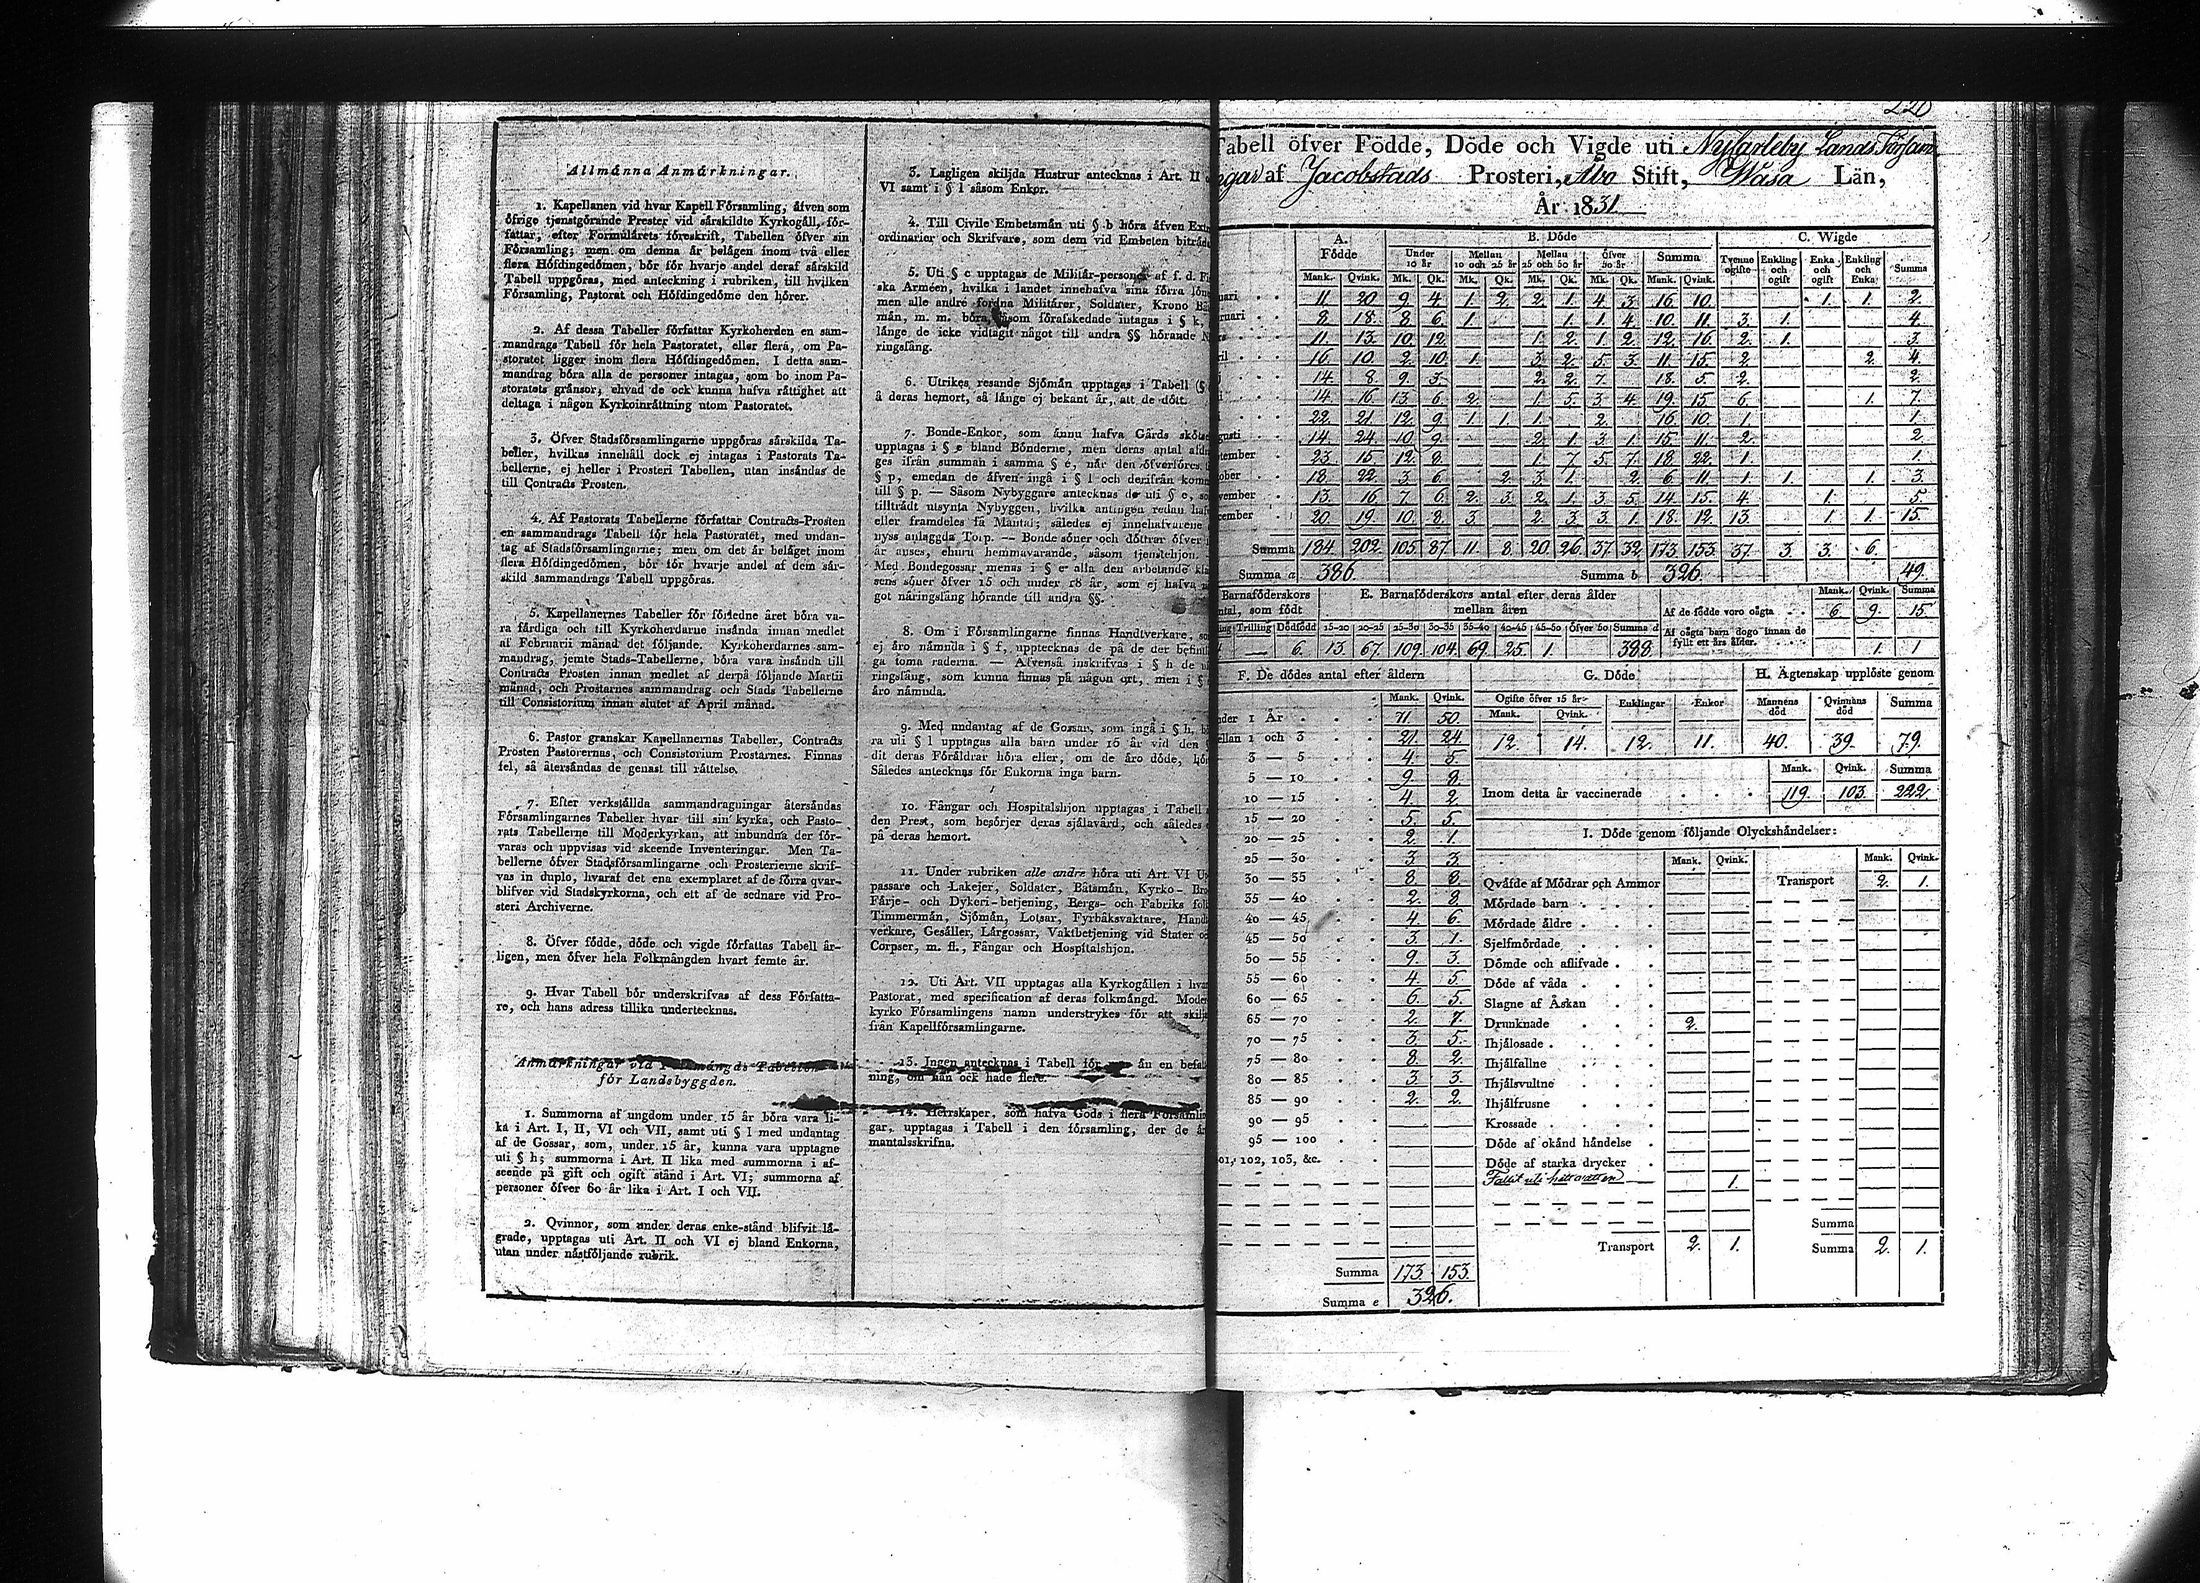 220
Allmänna Anmärkningar.
1. Kapellanen vid hvar Kapell Församling, äfven som
öfrige tjenstgörande Prester vid särskildte Kyrkogäll, för-
fattar, efter Formulärets föreskrift, Tabellen öfver sin
Församling; men om denna är belägen inom två eller
flera Höfdingedömen, bör för hvarje andel deraf särskild
Tabell uppgöras, med anteckning i rubriken, till hvilken
Församling, Pastorat och Höfdingedöme den hörer.
2. Af dessa Tabeller författar Kyrkoherden en sam-
mandrags Tabell för hela Pastoratet, eller flera, om Pa-
storatet ligger inom flera Höfdingedömen. I detta sam-
mandrag böra alla de personer intagas, som bo inom Pa-
storatets gränsor, ehvad de ock kunna hafva rättighet att
deltaga i någon Kyrkoinrättning utom Pastoratet.
3. Öfver Stadsförsamlingarne uppgöras särskilda Ta-
beller, hvilkas innehåll dock ej intagas i Pastorats Ta-
bellerne, ej heller i Prosteri Tabellen, utan insändas de
till Contracts Prosten.
4. Af Pastorats Tabellerne författar Contracts-Prosten
en sammandrags Tabell för hela Pastoratet, med undan-
tag af Stadsförsamlingarne; men om det är belåget inom
flera Höfdingedömen, bör för hvarje andel af dem sär-
skild sammandrags Tabell uppgöras.
5. Kapellanernes Tabeller för förledne året böra va-
ra färdiga och till Kyrkoherdarne insända innan medlet
af Februarii månad det följande. Kyrkoherdarnes sam-
mandrag, jemte Stads-Tabellerne, böra vara insända till
Contracts Prosten innan medlet af derpå följande Martii
månad, och Prostarnes sammandrag och Stads Tabellerne
till Consistorium innan slutet af April månad.
6. Pastor granskar Kapellanernas Tabeller, Contracts
Prosten Pastorernas, och Consistorium Prostarnes. Finnas
fel, så återsändas de genast till rättelse.
7. Efter verkställda sammandragningar återsändas
Församlingarnes Tabeller hvar till sin kyrka, och Pasto-
rats Tabellerne till Moderkyrkan, att inbundna der för-
varas och uppvisas vid skeende Inventeringar. Men Ta-
bellerne öfver Stadsförsamlingarne och Prosterierne skrif-
vas in duplo, hvaraf det ena exemplaret af de förra qvar-
blifver vid Stadskyrkorna, och ett af de sednare vid Pro-
steri Archiverne.
8. Öfver födde, döde och vigde författas Tabell år-
ligen, men öfver hela Folkmängden hvart femte år.
9. Hvar Tabell bör underskrifvas af dess Författa-
re, och hans adress tillika undertecknas.
Anmärkningar vid Tabellen
för Landsbyggden.
1. Summorna af ungdom under 15 år böra vara li-
ka i Art. I, II, VI och VII, samt uti § l med undantag
af de Gossar, som, under 15 år, kunna vara upptagne
uti § h; summorna i Art. II lika med summorna i af-
seende på gift och ogift stånd i Art. VI; summorna af
personer öfver 60 år lika i Art. I och VII.
2. Qvinnor, som under deras enke-stånd blifvit lä-
grade, upptagas uti Art. II och VI ej bland Enkorna,
utan under nästföljande rubrik.
3. Lagligen skiljda Hustrur antecknas i Art. II
VI samt i § l såsom Enkor.
4. Till Civile Embetsmän uti § b höra äfven Ext
ordinarier och Skrifvare, som dem vid Embeten biträd
5. Uti § c upptagas de Militär-personer af f. d. Fi
ska Arméen, hvilka i landet innehafva sina förra lön
men alle andre fordna Militärer, Soldater, Krono Bå
män, m. m. böra såsom förafskedade intagas i § k,
länge de icke vidtagit något till andra §§ hörande N
ringsfång.
6. Utrikes resande Sjömän upptagas i Tabell (§
å deras hemort, så länge ej bekant är, att de dött.
7. Bonde-Enkor, som ännu hafva Gårds sköts
upptagas i § e bland Bönderne, men deras antal afdr
ges ifrån summan i samma § e, när den öfverföres
§ p, emedan de äfven ingå i § l och derifrån komm
till § p. — Såsom Nybyggare antecknas de uti § e, so
tillträdt utsynta Nybyggen, hvilka antingen redan haf
eller framdeles få Mantal; således ej innehafvarene
nyss anlaggda Torp. — Bonde söner och döttrar öfver
år anses, ehuru hemmavarande, såsom tjenstehjon.
Med Bondegossar menas i § e alla den arbetande kla
sens söner öfver 15 och under 18 år, som ej hafva
got näringsfång hörande till andra §§.
8. Om i Församlingarne finnas Handtverkare, so
ej äro nämnda i § f, upptecknas de på de der befint
ga toma raderna. — Äfvenså inskrifvas i § h de
ringsfång, som kunna finnas på någon ort, men i §
äro nämnda.
9. Med undantag af de Gossar, som ingå i § h, b
ra uti § l upptagas alla barn under 15 år vid den §
dit deras Föräldrar höra eller, om de äro döde, hör
Således antecknas för Enkorna inga barn.
10. Fångar och Hospitalshjon upptagas i Tabell
den Prest, som besörjer deras själavård, och således
på deras hemort.
11. Under rubriken alle andre höra uti Art. VI U
passare och Lakejer, Soldater, Båtsmän, Kyrko- Bro
Färje- och Dykeri-betjening, Bergs- och Fabriks folk
Timmermän, Sjömän, Lotsar, Fyrbåksvaktare, Handt
verkare, Gesäller, Lärgossar, Vaktbetjening vid Stater o
Corpser, m. fl., Fångar och Hospitalshjon.
12. Uti Art. VII upptagas alla Kyrkogällen i hva
Pastorat, med specification af deras folkmängd. Mode
kyrko Församlingens namn understrykes för att skilja
från Kapellförsamlingarne.
13. Ingen antecknas i Tabell för än en befatt
ning, om han ock hade flere.
14. Herrskaper, som hafva Gods i flera Församlin
gar, upptagas i Tabell i den församling, der de ä
mantalsskrifna.
Tabell öfver Födde, Döde och Vigde uti Nykarleby Lands Församl
ingar af Jacobstads Prosteri, Åbo Stift, Wasa Län,
År 1831
A. Födde B. Döde C. Wigde
Under 10 år Mellan 10 och 25 år Mellan 25 och 50 år Öfver 50 år Summa Tvenne ogifte Enkling och ogift Enka och ogift Enkling och Enka Summa
Mank. Qvink. Mk. Qk. Mk. Qk. Mk. Qk. Mk. Qk. Mank. Qvink.
uari 11. 20. 9. 4. 1. 2. 2. 1. 4. 3. 16. 10. 1. 1. 2.
ruari 8. 18. 8. 6. 1. 1. 1. 4. 10. 11. 3. 1. 4.
11. 13. 10. 12. 1. 2. 1. 2. 12. 16. 2. 1. 3.
il 16. 10. 2. 10. 1. 3. 2. 5. 3. 11. 15. 2. 2. 4.
14. 8. 9. 3. 2. 2. 7. 18. 5. 2. 2.
14. 16. 13. 6. 2. 1. 5. 3. 4. 19. 15. 6. 1. 7.
22. 21. 12. 9. 1. 1. 1. 2. 16. 10. 1. 1.
gusti 14. 24. 10. 9. 2. 1. 3. 1. 15. 11. 2. 2.
tember 23. 15. 12. 8. 1. 7. 5. 7. 18. 22. 1. 1.
ober 18. 22. 3. 6. 2. 3. 1. 2. 6. 11. 1. 1. 1. 3.
vember 13. 16. 7. 6. 2. 3. 2. 1. 3. 5. 14. 15. 4. 1. 5.
cember 20. 19. 10. 8. 3. 2. 3. 3. 1. 18. 12. 13. 1. 1. 15.
Summa 184. 202. 105. 87. 11. 8. 20. 26. 37. 32. 173. 153. 37. 3. 3. 6.
Summa a 386. Summa b 326. 49.
Barnaföderskors
ntal, som födt
ling Trilling Dödfödd
— 6.
E. Barnaföderskors antal efter deras ålder
mellan åren
15-20 20-25 25-30 30-35 35-40 40-45 45-50 Öfver 50 Summa d
13. 67. 109. 104. 69. 25. 1. 388.
Mank. Qvink. Summa
Af de födde voro oägta 6 9. 15.
Af oägta barn dogo innan de
fyllt ett års ålder. 1. 1
F. De dödes antal efter åldern
Mank. Qvink.
nder 1 År 71. 50.
ellan 1 och 3 21. 24.
3 — 5 4. 5.
5 — 10 9. 8.
10 — 15 4. 2.
15 — 20 5. 5.
20 — 25 2. 1.
25 — 30 3. 3.
30 — 35 8. 8.
35 — 40 2. 8.
40 — 45 4. 6.
45 — 50 3. 1.
50 — 55 9. 3.
55 — 60 4. 5.
60 — 65 6. 5.
65 — 70 2. 7.
70 — 75 3. 5.
75 — 80 8. 2.
80 — 85 3. 3.
85 — 90 2. 2.
90 — 95
95 — 100
101, 102, 103, &c.
Summa 173. 153.
Summa e 326.
G. Döde
Ogifte öfver 15 år Enklingar Enkor
Mank. Qvink.
12. 14. 12. 11.
H. Ägtenskap upplöste genom
Mannens död Qvinnans död Summa
40. 39. 79.
Mank. Qvink. Summa
Inom detta år vaccinerade 119. 103. 222.
I. Döde genom följande Olyckshändelser:
Mank. Qvink. Mank. Qvink.
Qväfde af Mödrar och Ammor Transport 2. 1.
Mördade barn
Mördade äldre
Sjelfmördade
Dömde och aflifvade
Döde af våda
Slagne af Åskan
Drunknade 2.
Ihjälosade
Ihjälfallne
Ihjälsvultne
Ihjälfrusne
Krossade
Döde af okänd händelse
Döde af starka drycker
Fallit uti 1.
Summa
Transport 2. 1. Summa 2. 1.